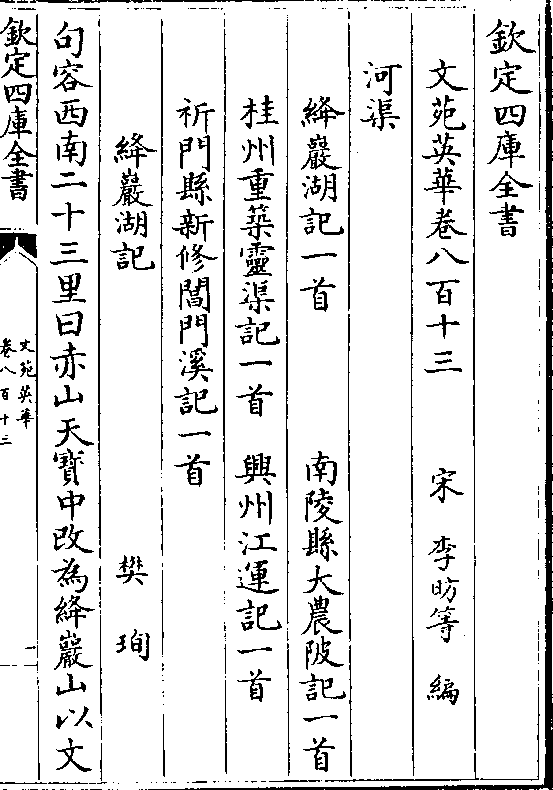 欽定四庫全書
文苑英華卷八百十三　宋　李昉等　編
河渠
絳巖湖記一首　南陵縣大農陂記一首
桂州重築靈渠記一首　興州江運記一首
祈門縣新修閶門溪記一首
絳巖湖記　樊珣
句容西南二十三里曰赤山天寶中改為絳巖山以文
欽定四庫全書
文苑英華
卷八百十三
一